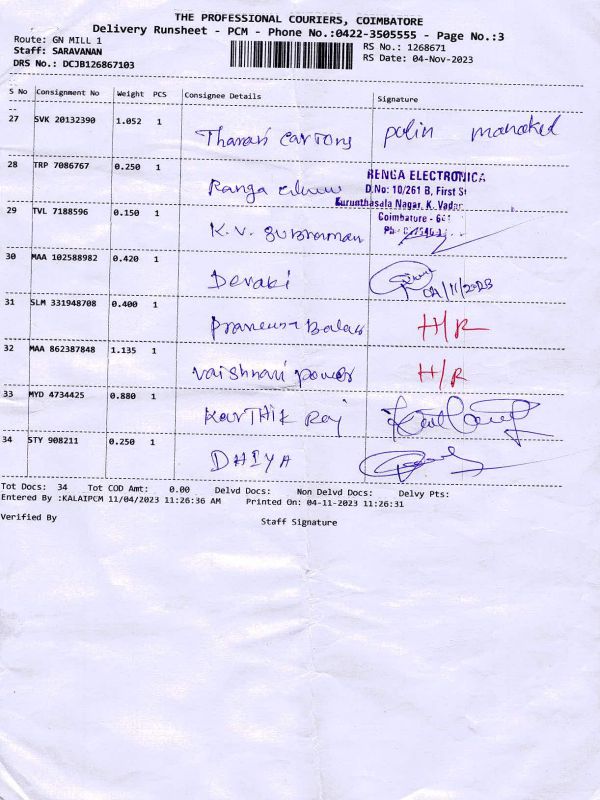 THE PROFESSIONAL COURIERS, COIMBATORE
Delivery Runsheet - PCM - Phone No.:0422-3505555 - Page No.:3
Route: GN MILL 1
RS No.: 1268671
Staff: SARAVANAN
RS Date: 04-Nov-2023
DRS No.: DCJB126867103
S No Consignment No Weight PCS Consignee Details Signature
27 SVK 20132390 1.052 1 Tharani Cartons
28 TRP 7086767 0.250 1 Ranga
RENGA ELECTRONICA
D.No: 10/261 B, First St
Kurunthasala Nagar, K. Vadar
Coimbature - 641
29 TVL 7188596 0.150 1 K.V. Subraman
30 MAA 102588982 0.420 1 Devaki 04/11/2023
31 SLM 331948708 0.400 1 Balas H/R
32 MAA 862387848 1.135 1 Vaishnavi Power H/R
33 MYD 4734425 0.880 1 Karthik Raj
34 STY 908211 0.250 1 DHIYA
Tot Docs: 34 Tot COD Amt: 0.00 Delvd Docs: Non Delvd Docs: Delvy Pts:
Entered By :KALAIPCM 11/04/2023 11:26:36 AM Printed On: 04-11-2023 11:26:31
Verified By Staff Signature